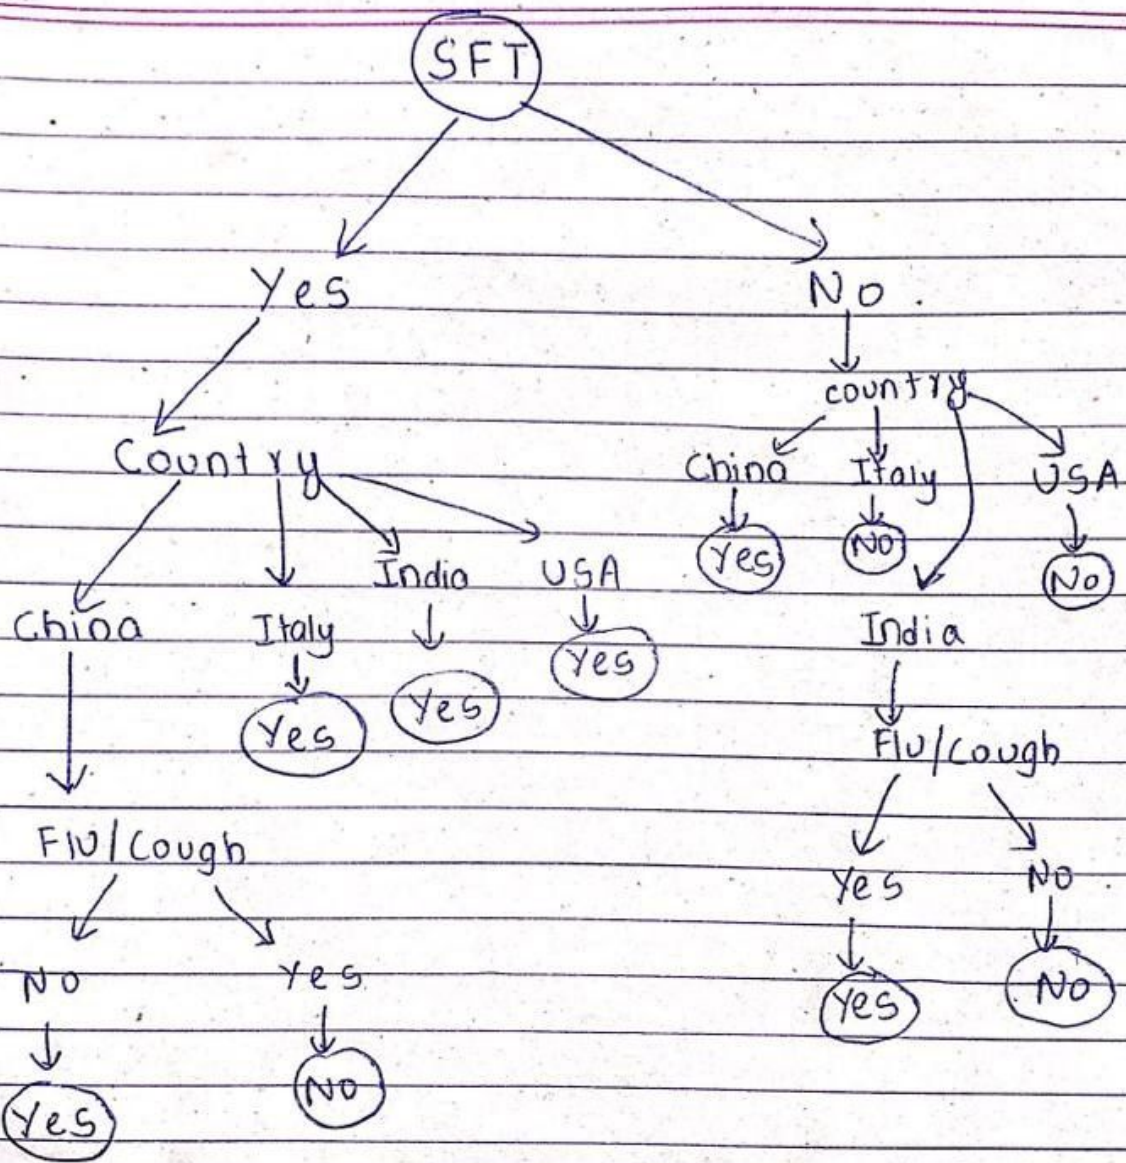 SFT
Yes No
country
Country
China Italy USA
Yes NO No
India USA
China Italy India
Yes
Yes Yes
Flu/Cough
Flu/Cough
Yes NO
No Yes
Yes No
Yes NO